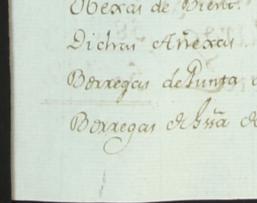 Obexas de Vient.
Dichas Añexas
Borregas de Punta
Borregas de